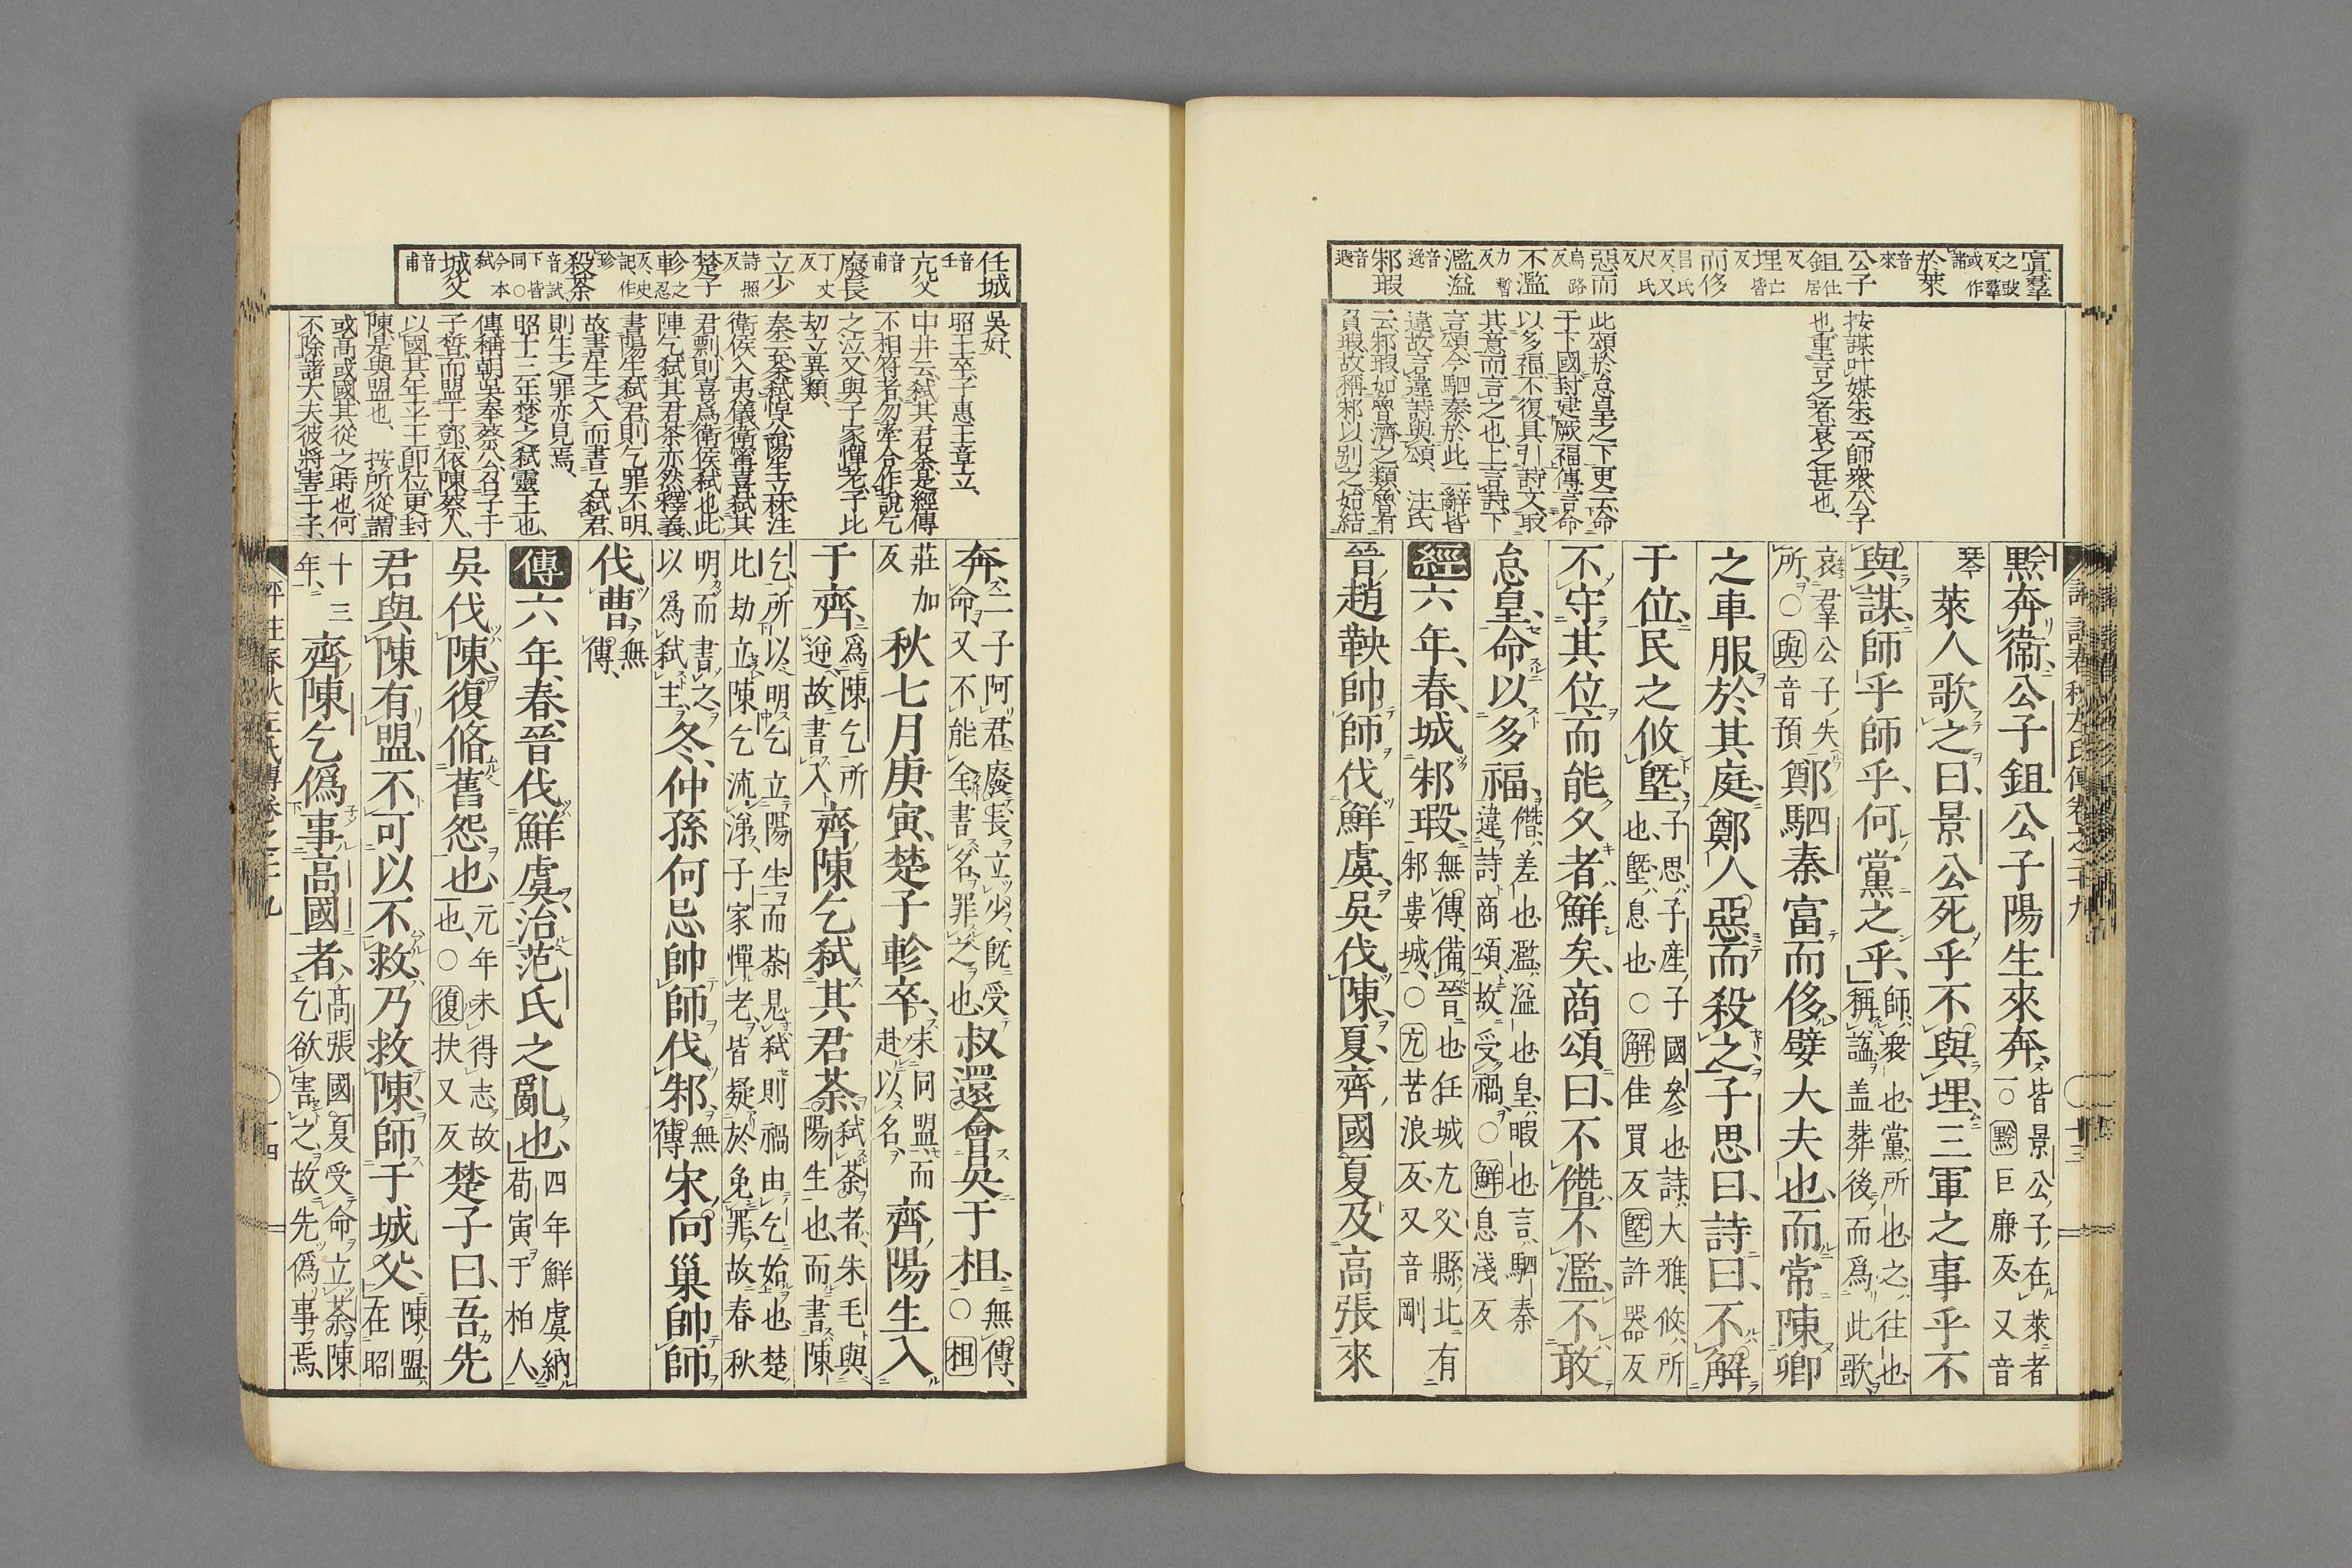 寘羣之豉反羣或作諸
於萊音來
公子鉏仕居反
埋亡皆反
而侈昌氏反又尺氏反
惡而烏路反
不濫力暫反
濫溢音逸
邾瑕音遐
按謀叶媒朱云師衆公子
也重言之者哀之甚也
此頌於怠皇之下更云命
于下國封建厥福傳言命
以多福不復具引詩文取
其意而言之也上言詩下
言頌今駟秦於此二辭皆
違故言違詩與頌 注氏
云邾瑕如魯濟之類魯有
負瑕故稱邾以別之始結
黔奔衞公子鉏公子陽生來奔皆景公子在萊者一〇黔巨廉反又音
琴萊人歌之曰景公死乎不與埋三軍之事乎不
與謀師乎師乎何黨之乎師衆也黨所也之往也稱謚蓋葬後而爲此歌
哀羣公子失所〇與音預鄭駟秦富而侈嬖大夫也而常陳卿
之車服於其庭鄭人惡而殺之子思曰詩曰不解
于位民之攸塈子思子產子國參也詩大雅攸所也塈息也〇解佳買反塈許器反
不守其位而能久者鮮矣商頌曰不僭不濫不敢
怠皇命以多福僭差也濫溢也皇暇也言駟秦違詩商頌故受禍〇鮮息淺反
經六年春城邾瑕無傳備晉也任城亢父縣北有邾婁城〇亢苦浪反又音剛
晉趙鞅帥師伐鮮虞吳伐陳夏齊國夏及高張來
評註春秋左氏傳卷之二十九
十三
任城音壬
亢父音甫
廢長丁丈反
立少詩照反
楚子軫之忍反史記作珍
殺荼音試下皆同〇今本弑
城父音甫
吳好
昭王卒子惠王章立
中井云弑其君荼是經傳
不相符者勿牽合作說乞
之泣又與子家憚老子比
劫立異類
秦云荼弑悼公陽生立林注
衛侯入夷儀衛甯喜弑其
君剽則喜爲衛侯弑也此
陳乞弑其君荼亦然釋義
書陽生弑君則乞罪不明
故書生之入而書乞弑君
則生之罪亦見焉
昭十三年楚之弑靈王也
傳稱朝吳奉蔡公召子于
子晳而盟于鄧依陳蔡人
以國其年平王卽位更封
陳是與盟也 按所從謂
或高或國其從之時也何
不除諸大夫彼將害于子
奔二子阿君廢長立少旣受命又不能全書名罪之也叔還會吳于柤無傳〇柤
莊加反秋七月庚寅楚子軫卒未同盟而赴以名齊陽生入
于齊爲陳乞所逆故書入齊陳乞弑其君荼弑荼者朱毛與陽生也而書陳
乞所以明乞立陽生而荼見弑則禍由乞始也楚比劫立陳乞流涕子家憚老皆疑於免罪故春秋
明而書之以爲弑主冬仲孫何忌帥師伐邾無傳宋向巢帥師
伐曹無傳
傳六年春晉伐鮮虞治范氏之亂也四年鮮虞納荀寅于柏人
吳伐陳復脩舊怨也元年未得志故也〇復扶又反楚子曰吾先
君與陳有盟不可以不救乃救陳師于城父陳盟在昭
十三年齊陳乞僞事高國者高張國夏受命立荼陳乞欲害之故先僞事焉
評註春秋左氏傳卷之二十九
十四